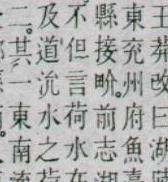 葬改曰湖
東兗州府魚
縣接畍。前志湖
不但言荷水在
及道沇水之荷
二。其一東南流